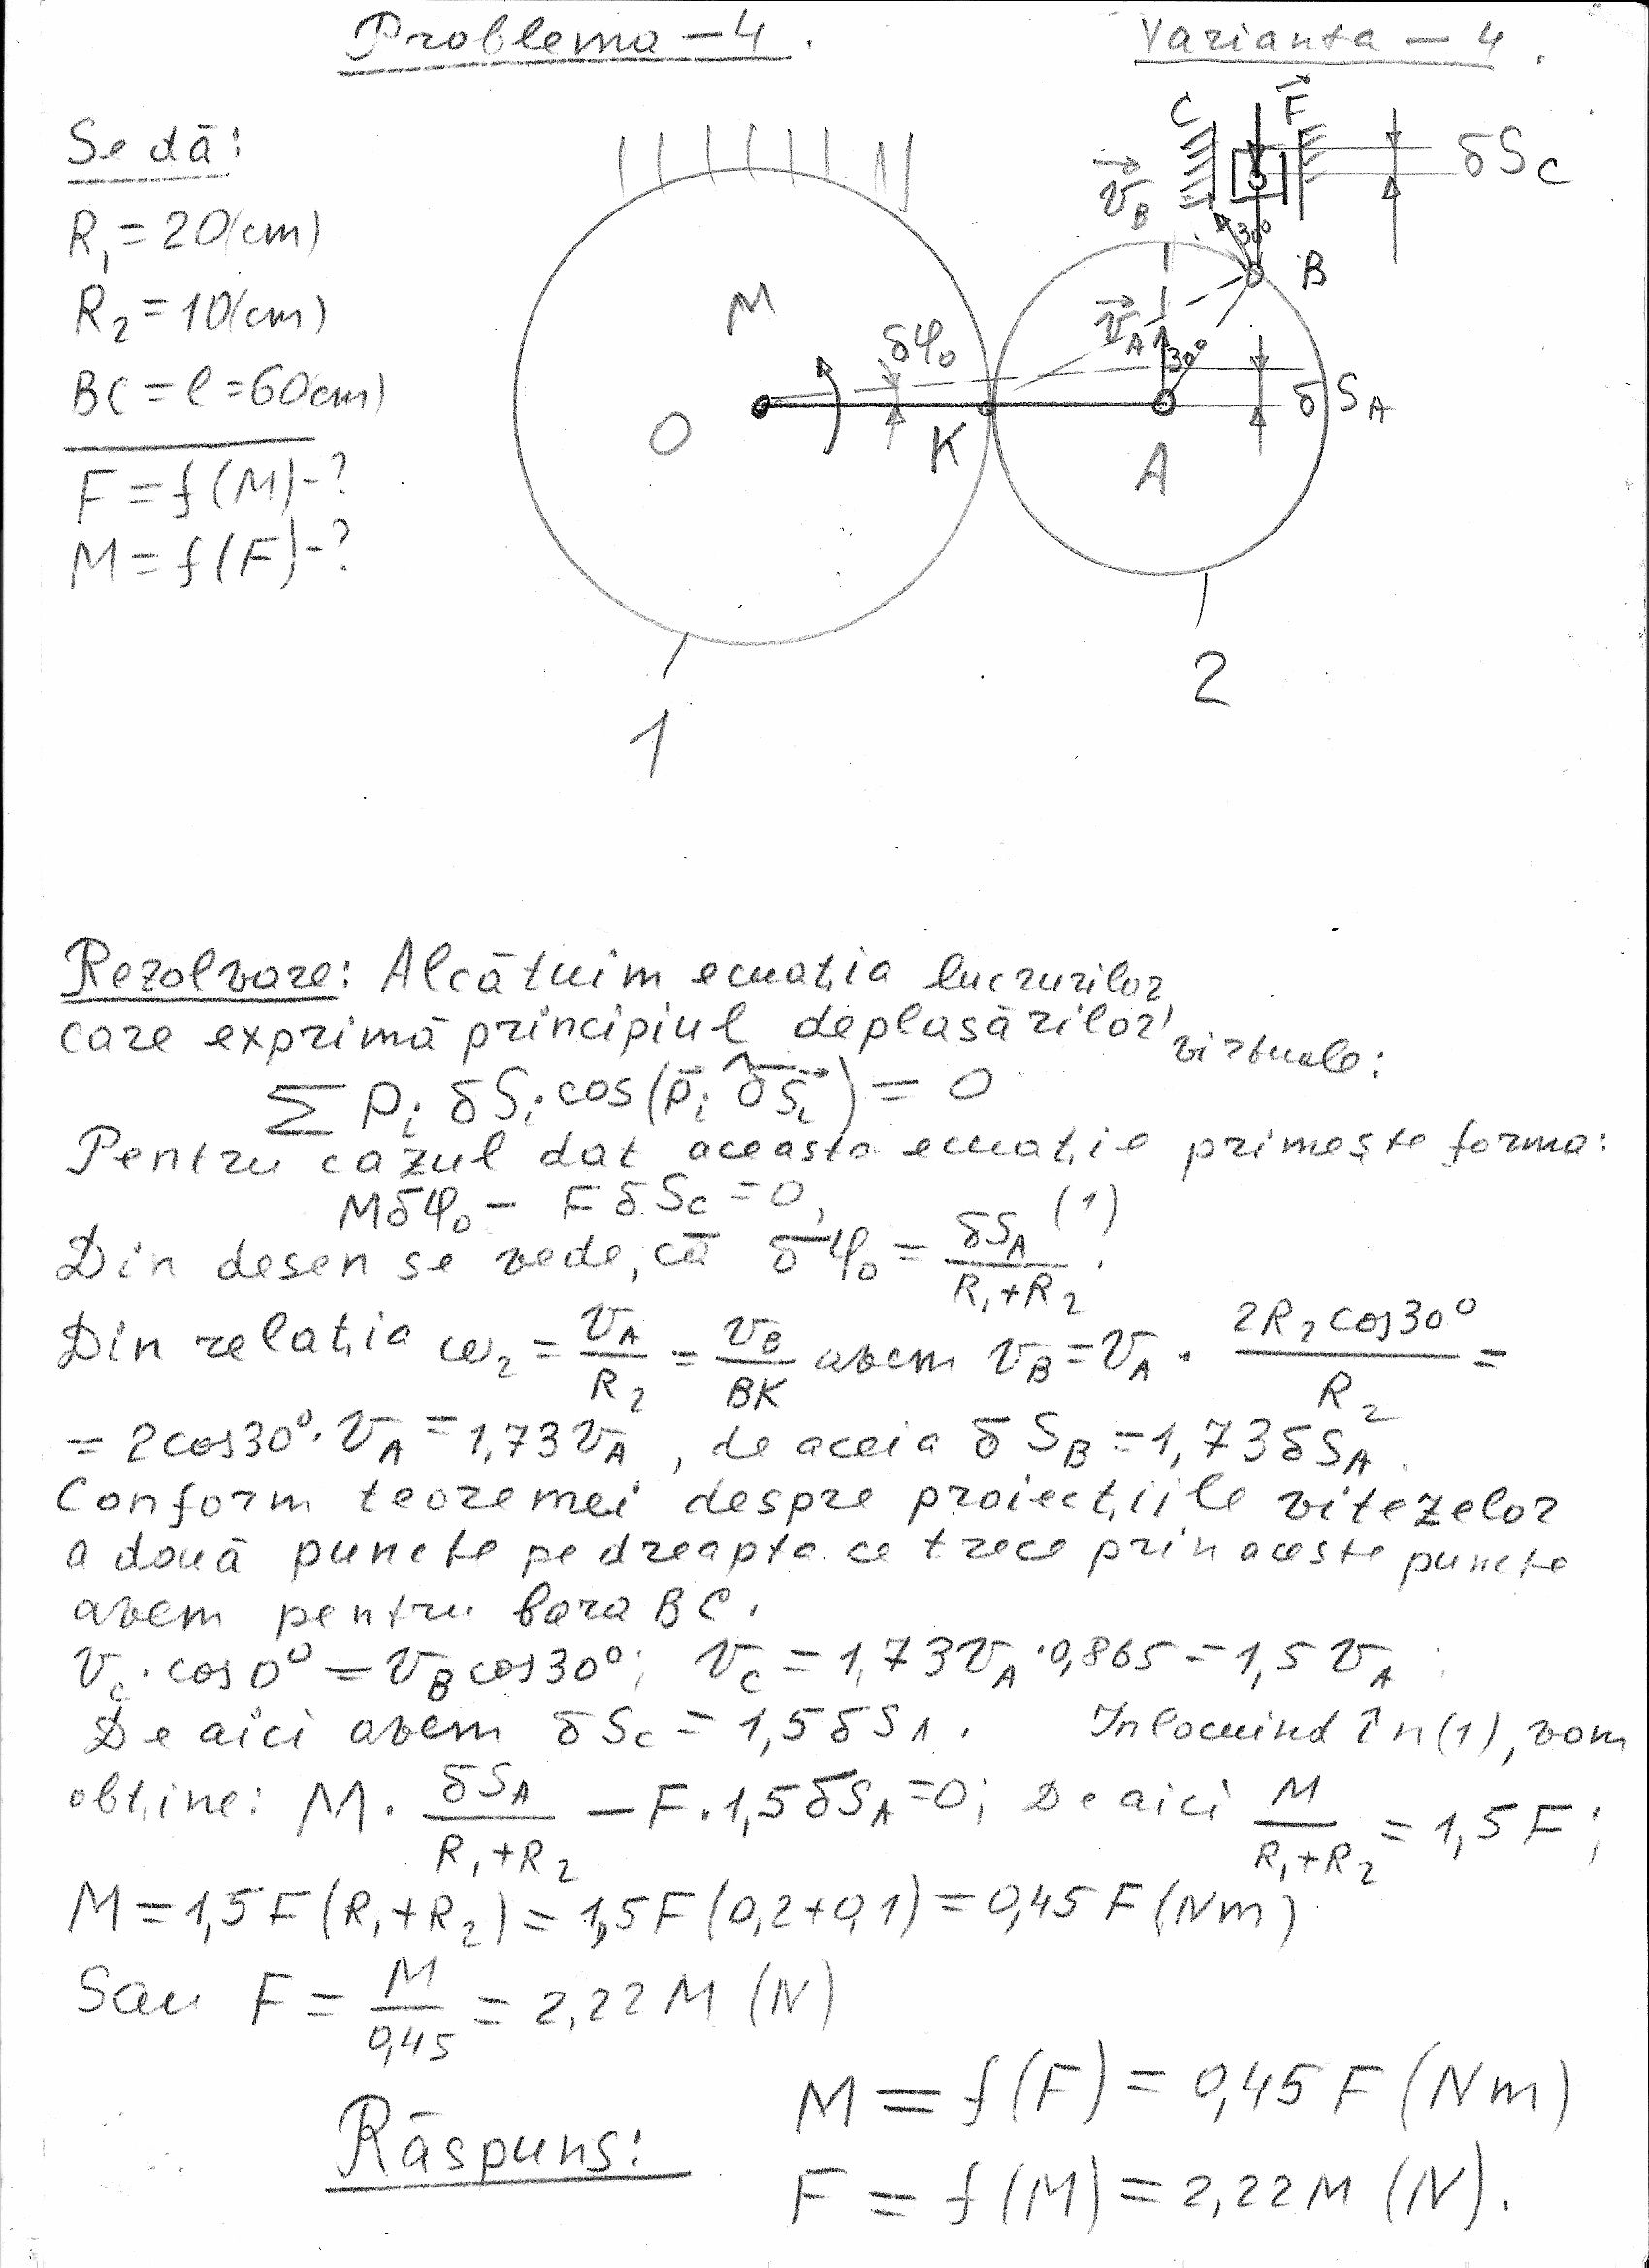 Problema – 4.
Varianta – 4.
Se dă:
R₁ = 20(cm)
R₂ = 10(cm)
BC = l = 60cm)
F = f(M) - ?
M = f(F) - ?
C
F
δS_C
v_B
30°
B
M
v_A
δφ₀
30°
δS_A
O
K
A
1
2
Rezolvare: Alcătuim ecuația lucrurilor
care exprimă principiul deplasărilor virtuale:
Σ Pᵢ δSᵢ cos(p̄ᵢ ^ δS̄ᵢ) = 0
Pentru cazul dat aceasta ecuație primește forma:
Mδφ₀ – FδS_C = 0, (1)
Din desen se vede, că δφ₀ = δS_A / (R₁+R₂).
Din relația ω₂ = v_A/R₂ = v_B/BK avem v_B = v_A · 2R₂cos30°/R₂ =
= 2cos30°·v_A = 1,73v_A, de aceia δS_B = 1,73δS_A.
Conform teoremei despre proiecțiile vitezelor
a două puncte pe dreapta ce trece prin aceste puncte
avem pentru bara BC.
v_c·cos0° = v_B cos30°; v_c = 1,73v_A·0,865 = 1,5v_A;
De aici avem δS_c = 1,5δS₁. Inlocuind în (1), vom
obține: M · δS_A/(R₁+R₂) – F·1,5δS_A = 0; De aici M/(R₁+R₂) = 1,5F;
M = 1,5F(R₁+R₂) = 1,5F(0,2+0,1) = 0,45F(Nm)
Sau F = M/0,45 = 2,22M (N)
Răspuns:
M = f(F) = 0,45F(Nm)
F = f(M) = 2,22M (N).